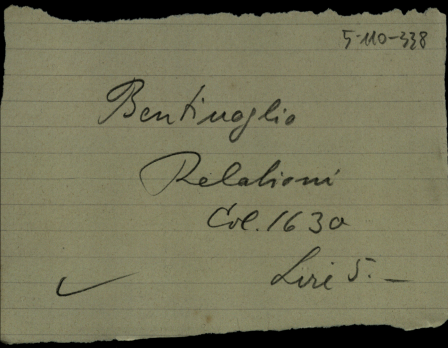 5-110-338
Bentivoglio
Relationi
Col. 1630
Lire 5.—